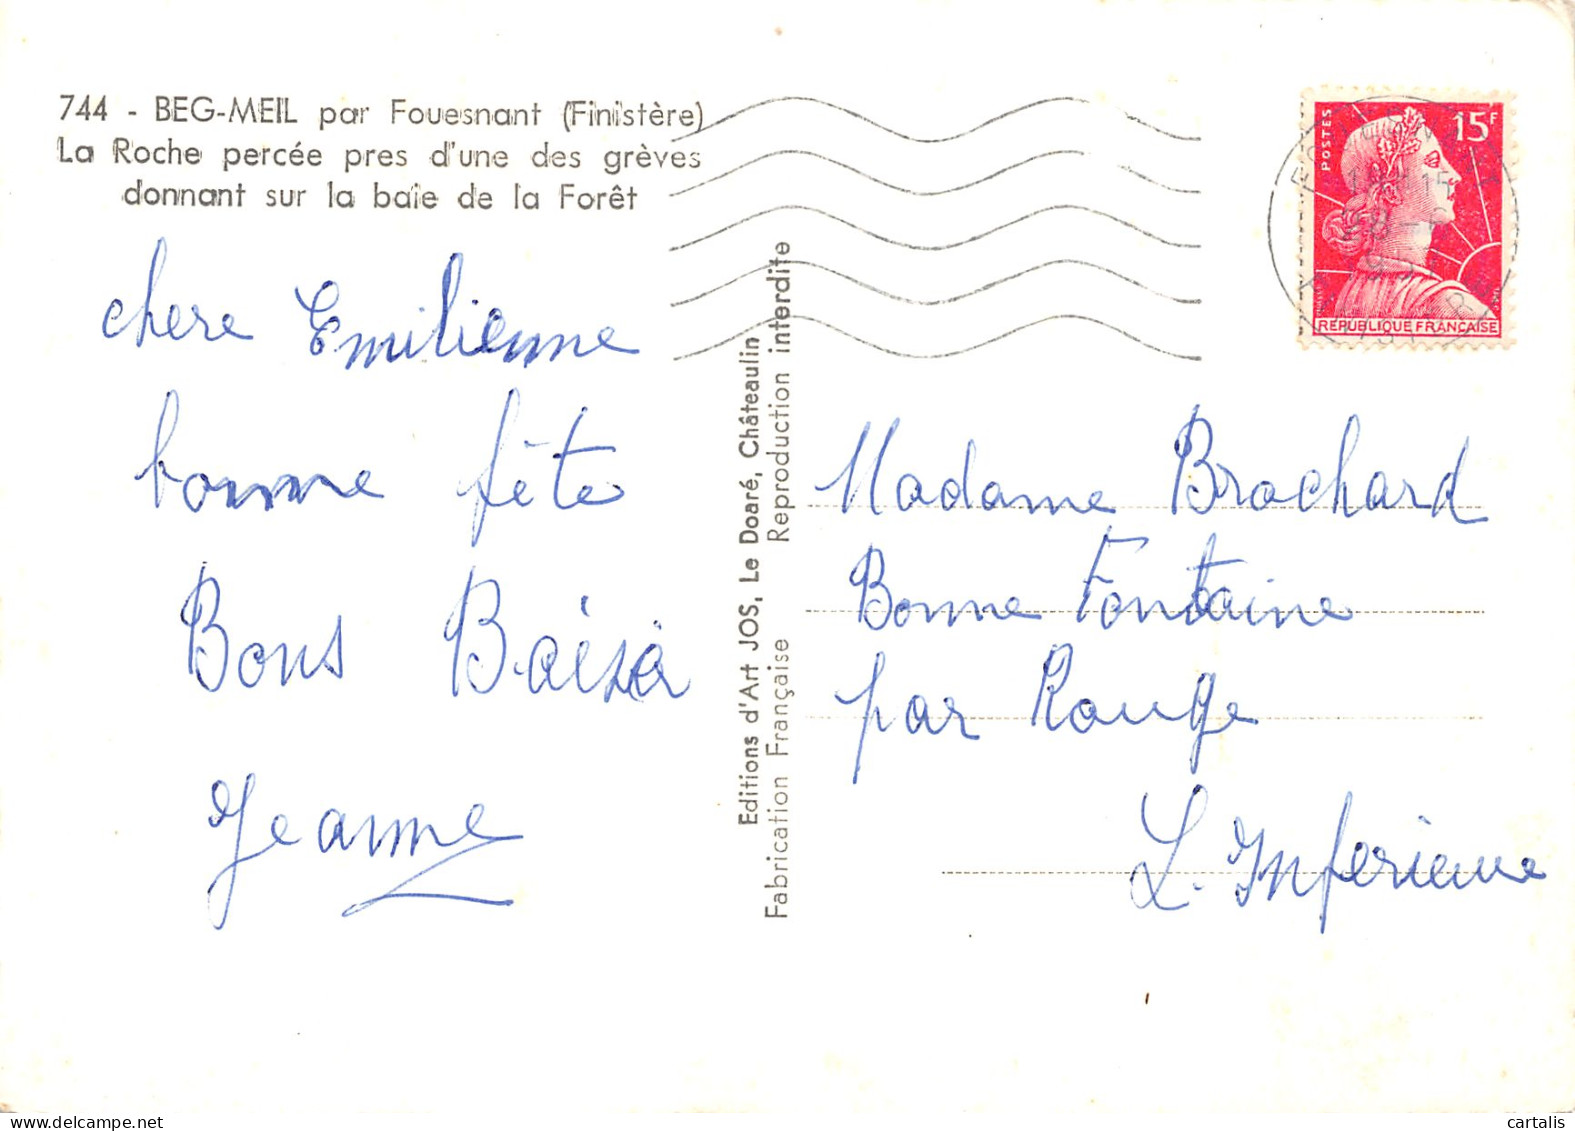 744 - BEG-MEIL par Fouesnant (Finistère)
La Roche percée pres d'une des grèves
donnant sur la baie de la Forêt
chere Emilienne
bonne fête
Bons Baisa
Jeanne
Editions d'Art JOS, Le Doaré, Châteaulin
Fabrication Française Reproduction interdite
POSTES
15F
REPUBLIQUE FRANÇAISE
Madame Brochard
Bonne Fontaine
par Rouge
L. Inferieure
cartalis